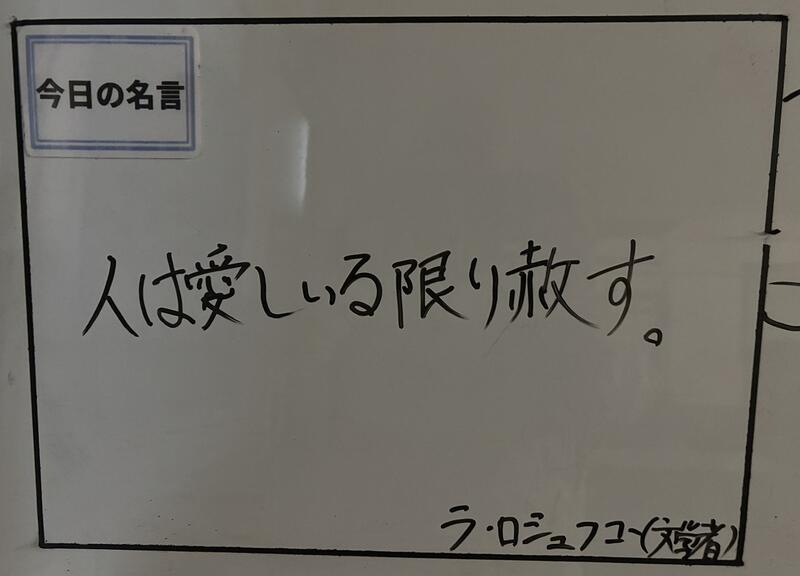 今日の名言
人は愛しいる限り赦す。
ラ・ロシュフコー(文学者)